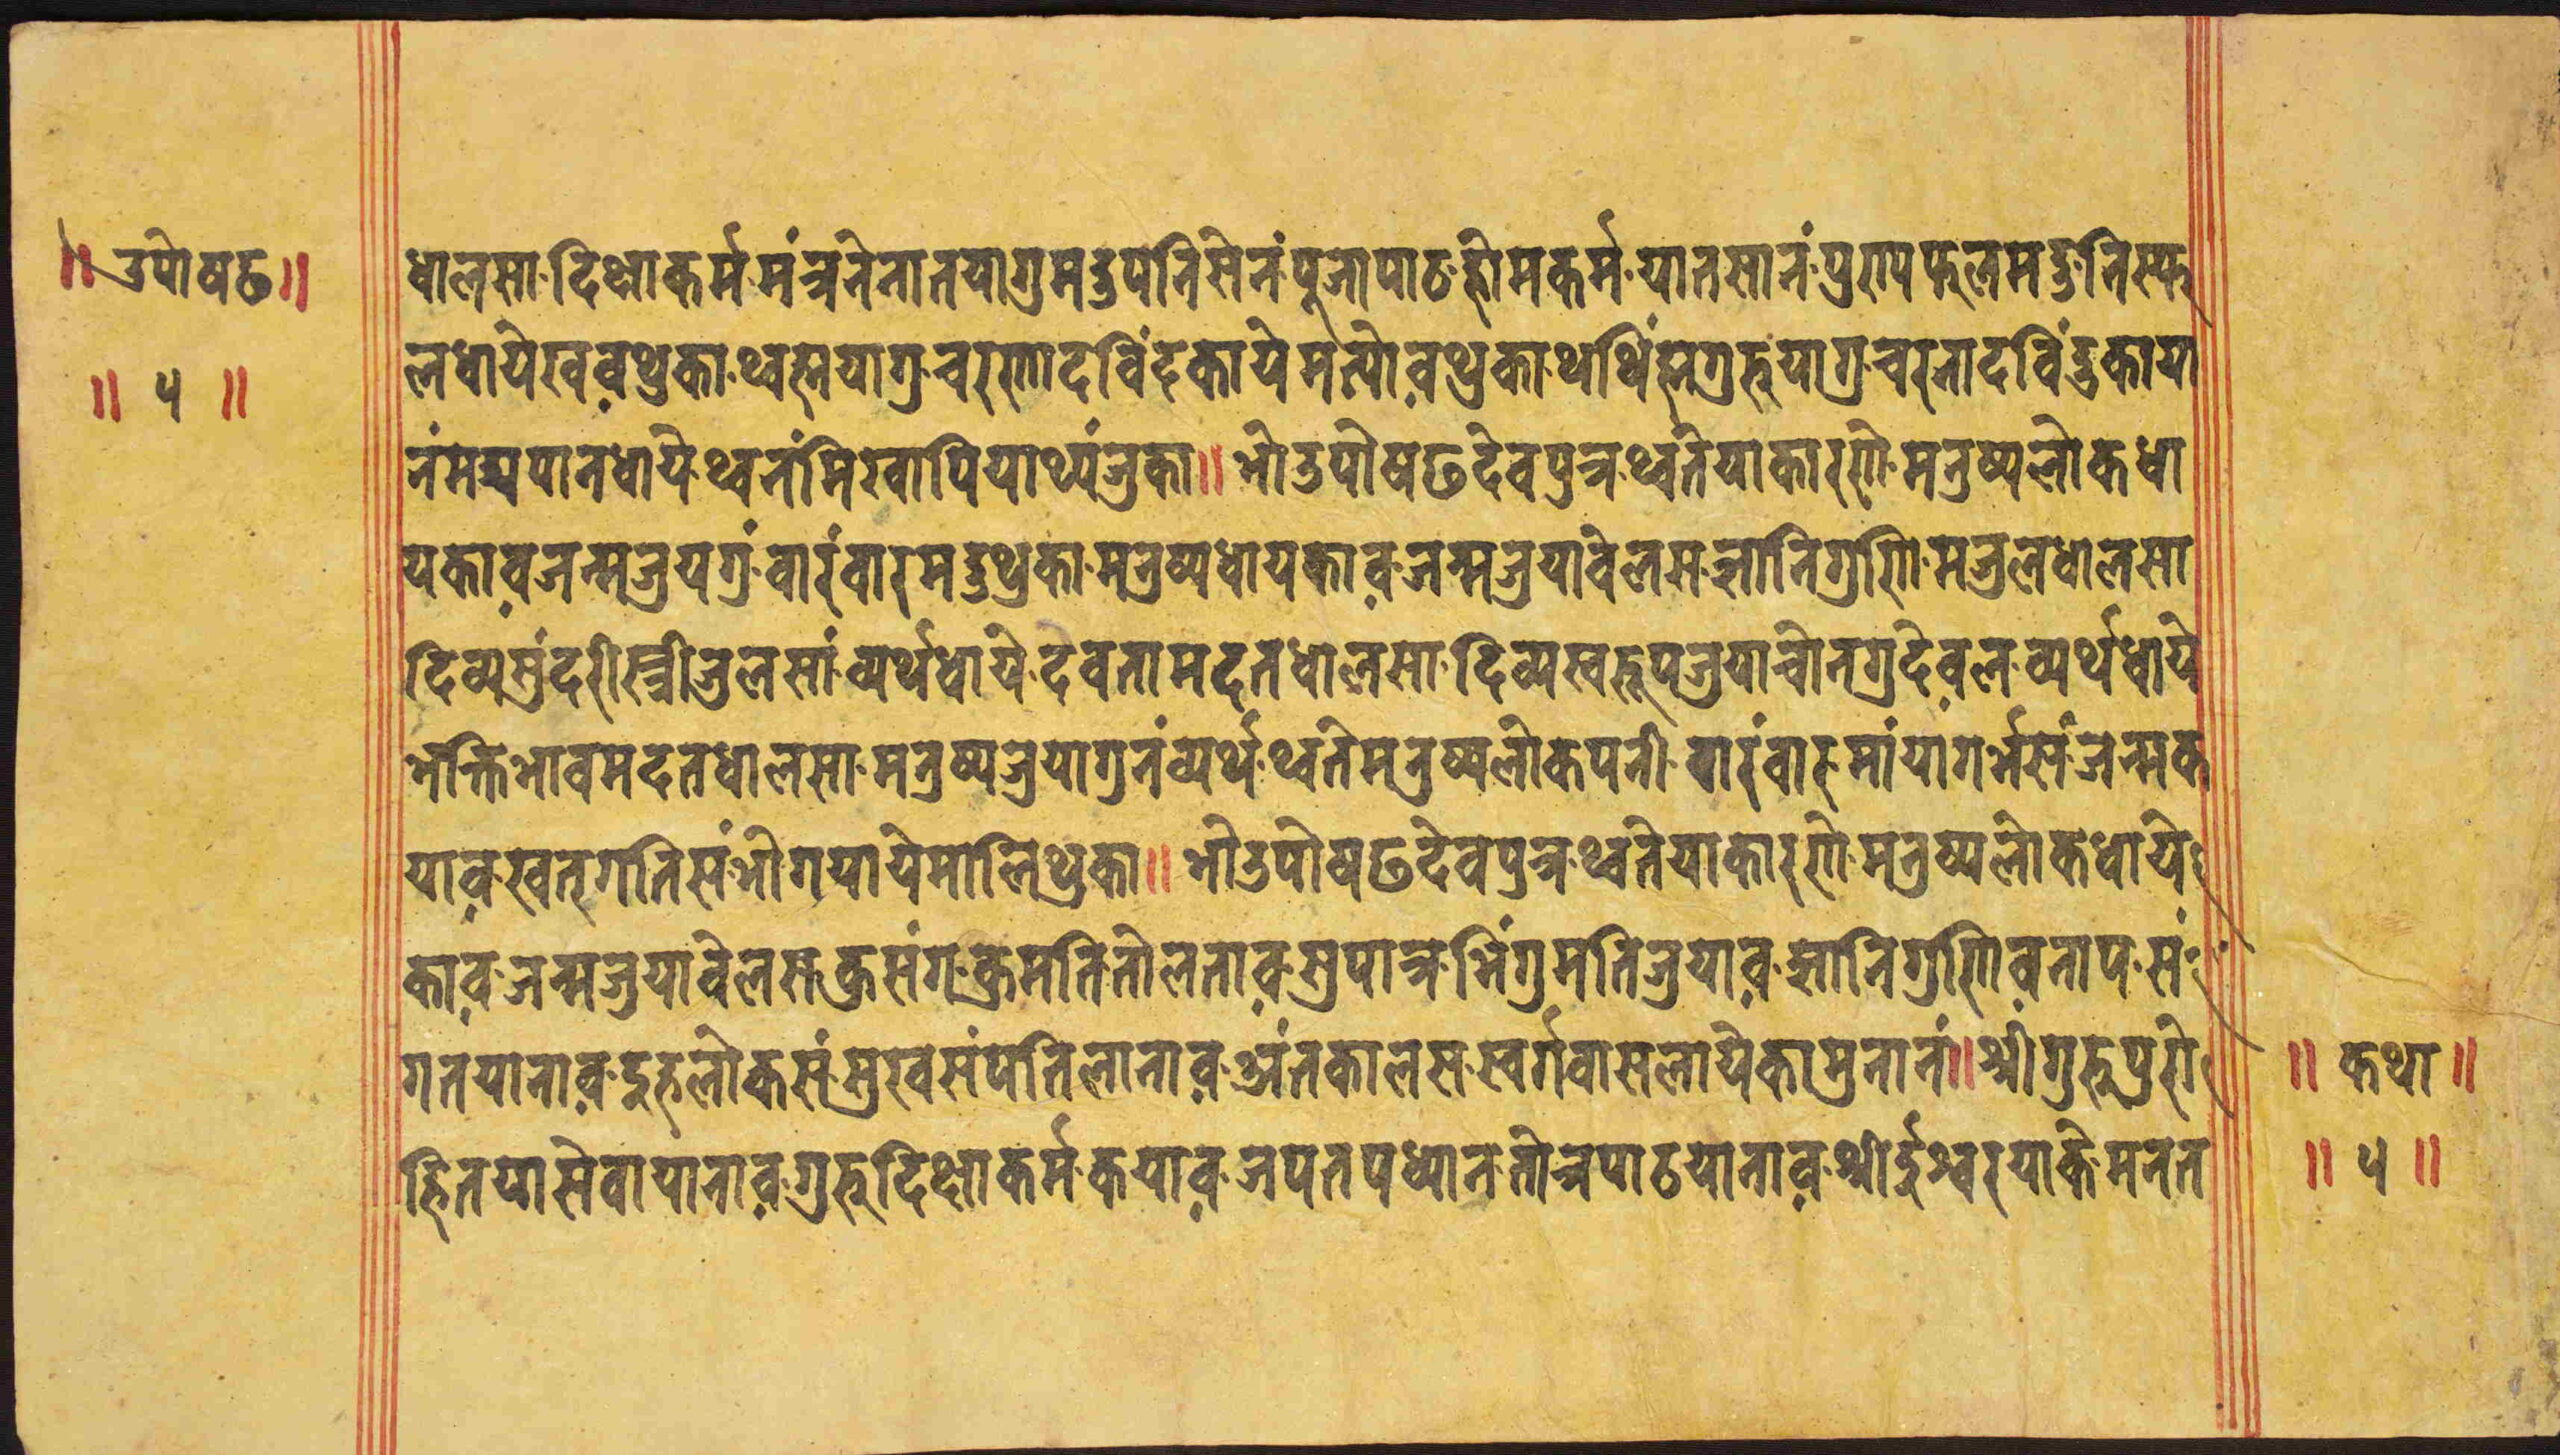 ॥ उपोषढ ॥
॥ ५ ॥
धालसा दिक्षाकर्म मंत्रनेनातयागुमदुपनिसेनं पूजापाठ होमकर्म यातसानं पुराप फलमदुनिस्फ
लधायेखव़थुका थ्वह्मयागु चरणादविंदकायेमत्योव़थुका थथिंह्मगुरूयागु चरनादविंदुकाया
नंमद्यपानधाये थ्वनंमिखापियाथ्यंजुका ॥ भोउपोषढदेवपुत्र थ्वतेयाकारणे मनुष्यलोकधा
यकाव़जन्मजुयगुं वारंवारमदुथुका मनुष्यधायकाव़ जन्मजुयावेलस ज्ञानिगुणि मजुलधालसा
दिव्यसुंदरीस्त्रीजुलसां व्यर्थधाये देवतामदतधालसा दिव्यस्वरूपजुयाचोनगुदेव़ल व्यर्थधाये
भक्तिभावमदतधालसा मनुष्यजुयागुनंव्यर्थ थ्वतेमनुष्यलोकपनी वारंवारमांयागर्भसं जन्मक
याव़ खतृगतिसंभोगयायेमालिथुका ॥ भोउपोषढदेवपुत्र थ्वतेयाकारणे मनुष्यलोकधाये
काव़ जन्मजुयावेलस कुसंग कुमतितोलताव़ सुपात्र भिंगुमतिजुयाव़ ज्ञानिगुणिव़नाप सं
गतयानाव़ इहलोकसंसुखसंपतिलानाव़ अंतकालस स्वर्गवासलायेकामुनानं ॥ श्रीगुरूपुरो
हितयासेवायानाव़ गुरूदिक्षाकर्मकयाव़ जपतपध्यानतोत्रपाठयानाव़ श्रीईश्वरयाके मनत
॥ कथा ॥
॥ ५ ॥